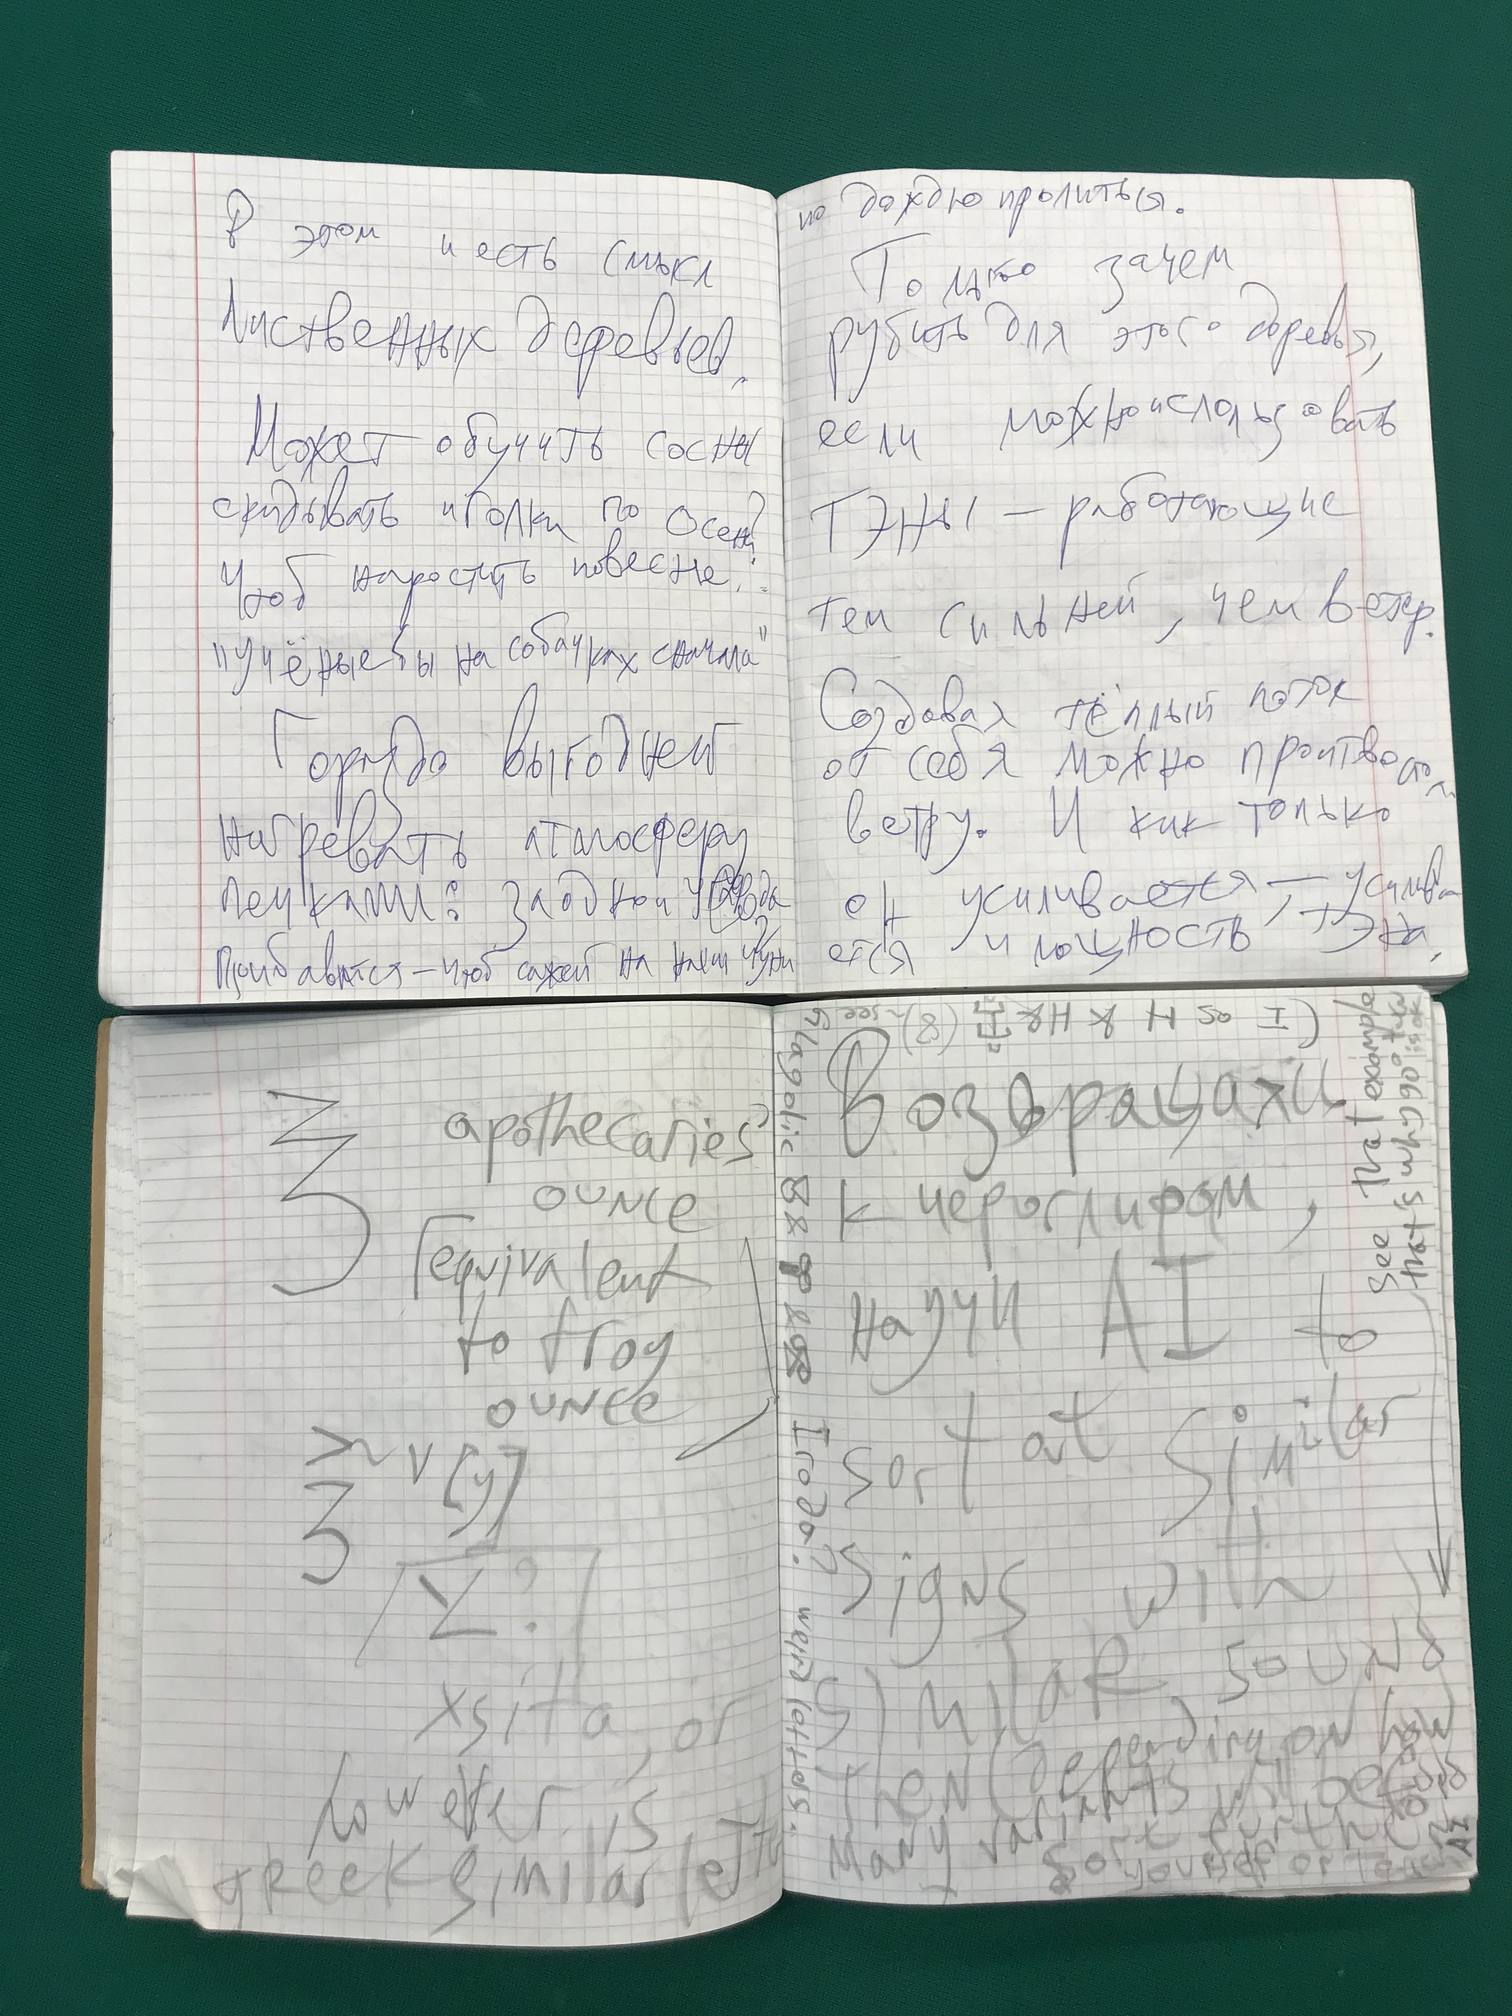 В этом и есть смысл
Лиственных деревьев.
Может обучить сосны
скидывать иголки по осени?
Чтоб наростить повесне.
"учёные бы на собачках сначала"
Гораздо выгодней
нагревать атмосферу
печками: заодно и углерода
прибавится — чтоб сажей на
по дождю пролиться.
Только зачем
рубить для этого деревья,
если можно использовать
ТЭНы — работающие
тем сильней, чем ветер.
Создавая тёплый поток
от себя можно противосто
ветру. И как только
он усиливается — усилива
ется и мощность ТЭна,
3 apothecaries'
ounce
equivalent
to troy
ounce
3 ~ v [y]
Σ?
xsitta, or
however is
greek similar lette
Glagolic
Iгода? weird lettras.
(8) see
Возвращаяи
к иероглифам,
научи AI to
sort at similar
signs with
similar sounds
then (depending on how
many variants will be found
sort further
or
AI
See that example
that's why 90° turn is ok